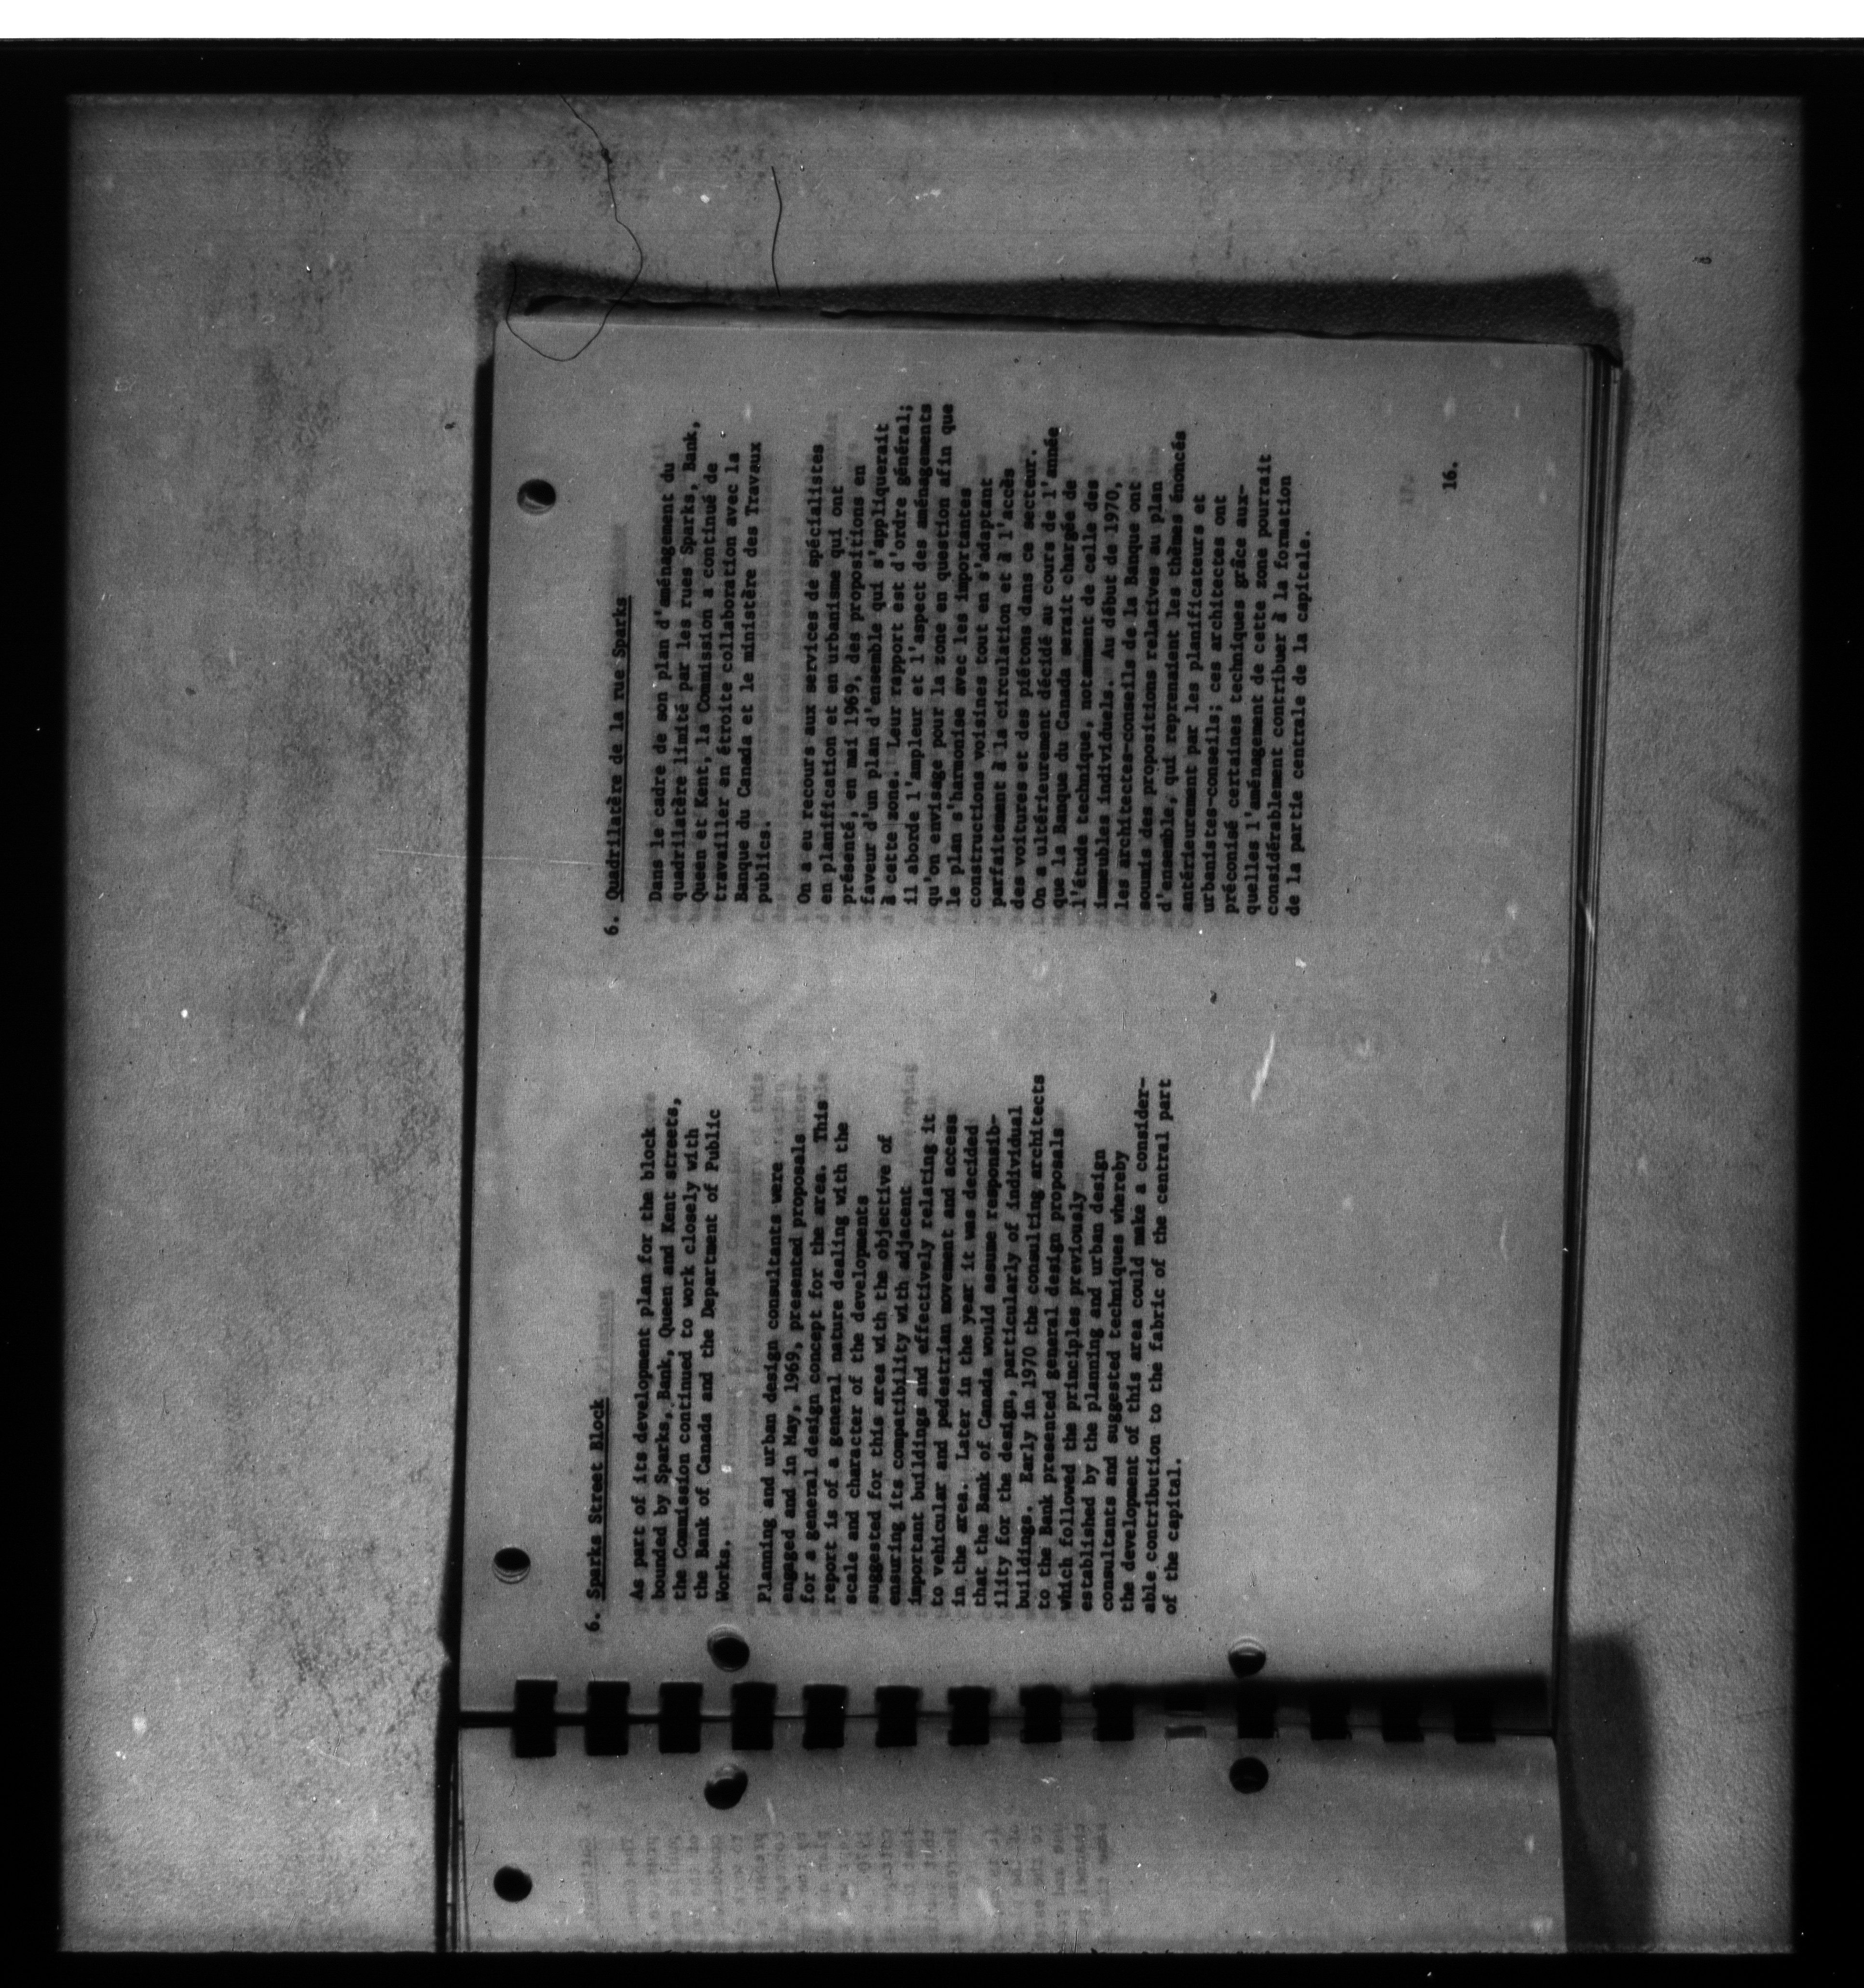 6. Sparks Street Block
As part of its development plan for the block
bounded by Sparks, Bank, Queen and Kent streets,
the Commission continued to work closely with
the Bank of Canada and the Department of Public
Works.
Planning and urban design consultants were
engaged and in May, 1969, presented proposals
for a general design concept for the area. This
report is of a general nature dealing with the
scale and character of the developments
suggested for this area with the objective of
ensuring its compatibility with adjacent
important buildings and effectively relating it
to vehicular and pedestrian movement and access
in the area. Later in the year it was decided
that the Bank of Canada would assume responsib-
ility for the design, particularly of individual
buildings. Early in 1970 the consulting architects
to the Bank presented general design proposals
which followed the principles previously
established by the planning and urban design
consultants and suggested techniques whereby
the development of this area could make a consider-
able contribution to the fabric of the central part
of the capital.
6. Quadrilatère de la rue Sparks
Dans le cadre de son plan d'aménagement du
quadrilatère limité par les rues Sparks, Bank,
Queen et Kent, la Commission a continué de
travailler en étroite collaboration avec la
Banque du Canada et le ministère des Travaux
publics.
On a eu recours aux services de spécialistes
en planification et en urbanisme qui ont
présenté, en mai 1969, des propositions en
faveur d'un plan d'ensemble qui s'appliquerait
à cette zone. Leur rapport est d'ordre général;
il aborde l'ampleur et l'aspect des aménagements
qu'on envisage pour la zone en question afin que
le plan s'harmonise avec les importantes
constructions voisines tout en s'adaptant
parfaitement à la circulation et à l'accès
des voitures et des piétons dans ce secteur.
On a ultérieurement décidé au cours de l'année
que la Banque du Canada serait chargée de
l'étude technique, notamment de celle des
immeubles individuels. Au début de 1970,
les architectes-conseils de la Banque ont
soumis des propositions relatives au plan
d'ensemble, qui reprenaient les thèmes énoncés
antérieurement par les planificateurs et
urbanistes-conseils; ces architectes ont
préconisé certaines techniques grâce aux-
quelles l'aménagement de cette zone pourrait
considérablement contribuer à la formation
de la partie centrale de la capitale.
16.